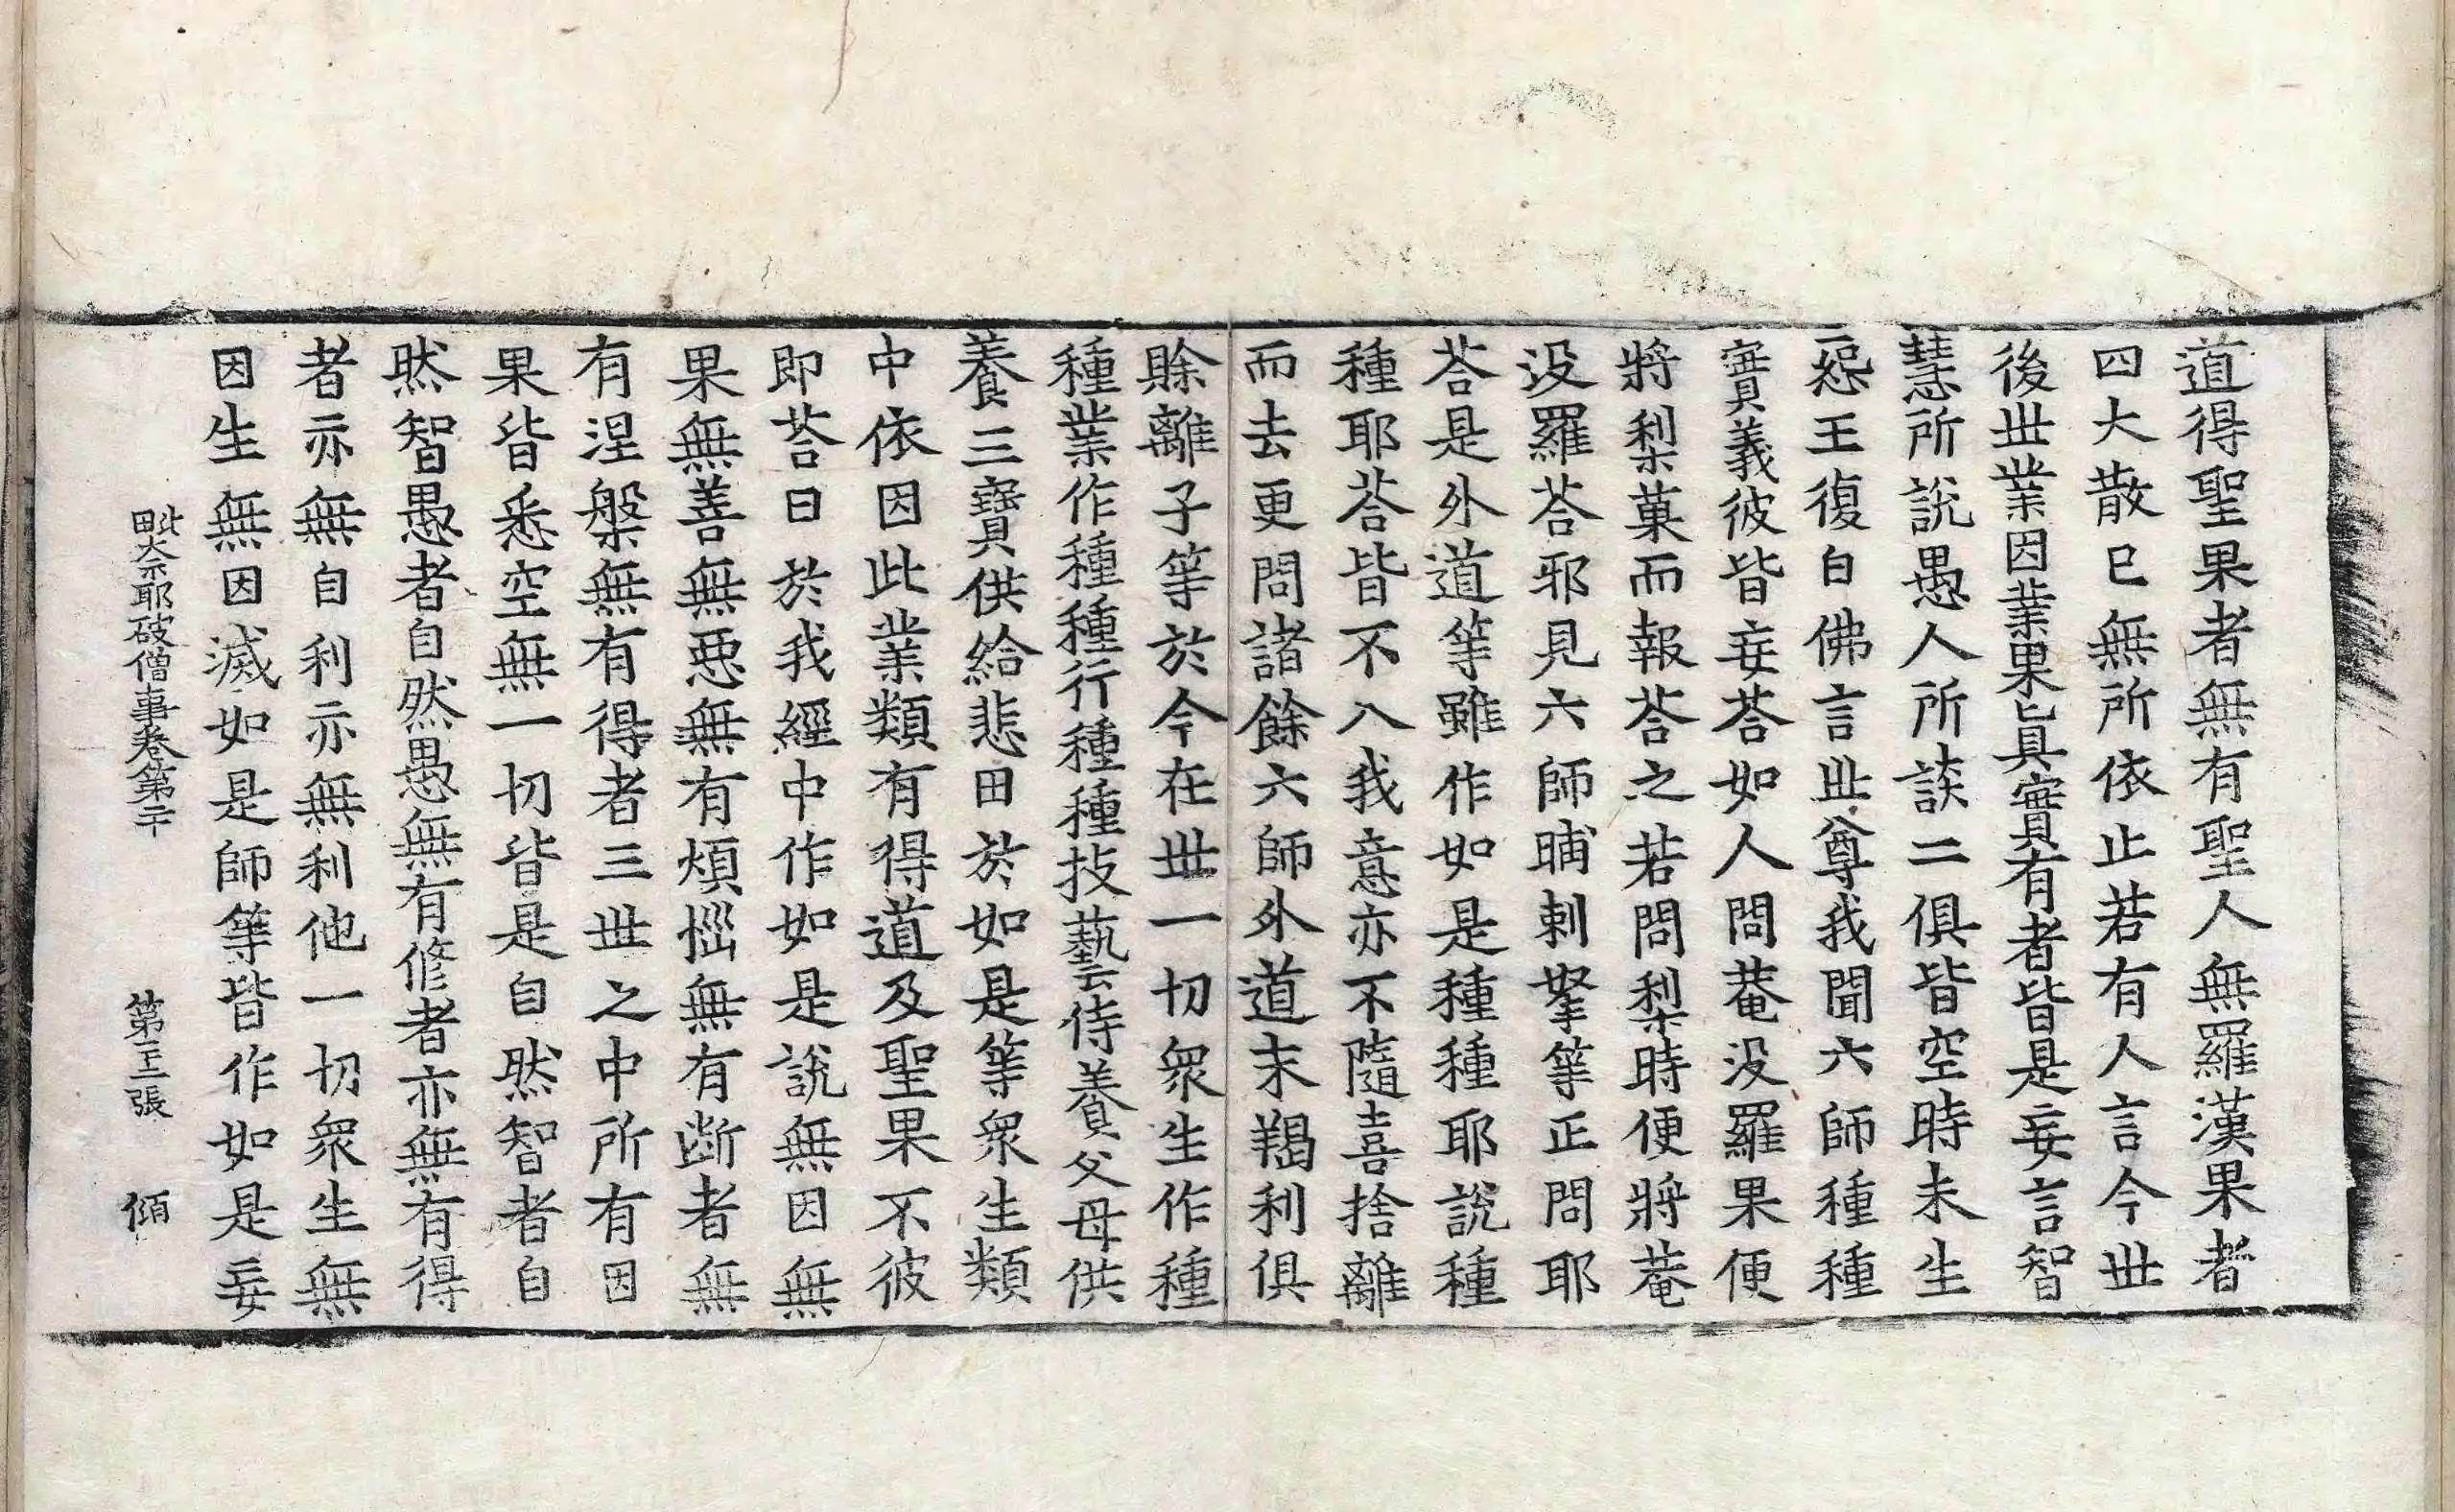 道得聖果者無有聖人無羅漢果者
四大散已無所依止若有人言今世
後世業因業果㠯真實有者皆是妄言智
慧所說愚人所談二俱皆空時未生
怨王復白佛言世尊我聞六師種種
實義彼皆妄荅如人問菴没羅果便
將梨菓而報荅之若問梨時便將菴
没羅荅邪見六師晡剌拏等正問耶
荅是外道等雖作如是種種耶說種
種耶荅皆不入我意亦不隨喜捨離
而去更問諸餘六師外道末羯利俱
賒離子等於今在世一切衆生作種
種業作種種行種種技藝侍養父母供
養三寶供給悲田於如是等衆生類
中依因此業類有得道及聖果不彼
即荅曰於我經中作如是說無因無
果無善無惡無有煩惱無有断者無
有涅槃無有得者三世之中所有因
果皆悉空無一切皆是自然智者自
然智愚者自然愚無有修者亦無有得
者亦無自利亦無利他一切衆生無
因生無因滅如是師等皆作如是妄
毗奈耶破僧事卷第二十 第三張 傾